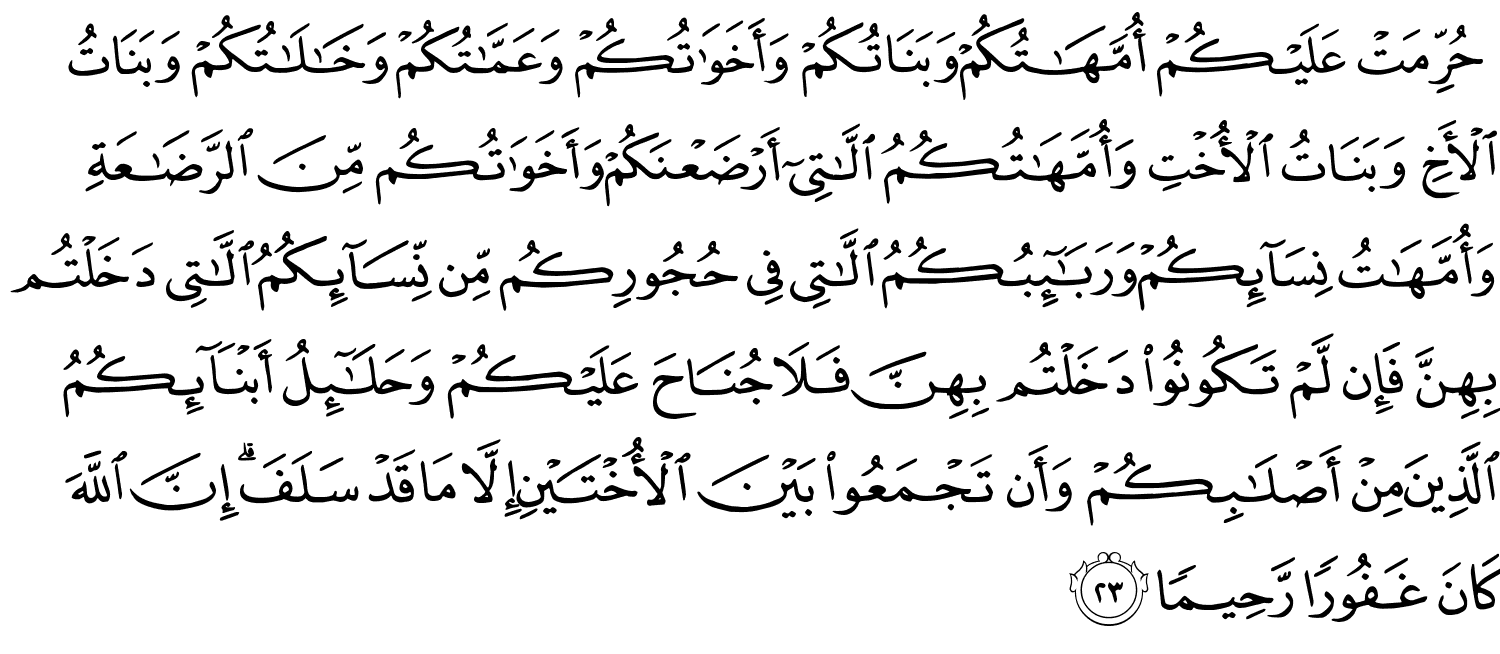 حُرِّمَتۡ عَلَيۡكُمۡ أُمَّهَٰتُكُمۡ وَبَنَاتُكُمۡ وَأَخَوَٰتُكُمۡ وَعَمَّٰتُكُمۡ وَخَٰلَٰتُكُمۡ وَبَنَاتُ
ٱلۡأَخِ وَبَنَاتُ ٱلۡأُخۡتِ وَأُمَّهَٰتُكُمُ ٱلَّٰتِيٓ أَرۡضَعۡنَكُمۡ وَأَخَوَٰتُكُم مِّنَ ٱلرَّضَٰعَةِ
وَأُمَّهَٰتُ نِسَآئِكُمۡ وَرَبَٰٓئِبُكُمُ ٱلَّٰتِي فِي حُجُورِكُم مِّن نِّسَآئِكُمُ ٱلَّٰتِي دَخَلۡتُم
بِهِنَّ فَإِن لَّمۡ تَكُونُواْ دَخَلۡتُم بِهِنَّ فَلَا جُنَاحَ عَلَيۡكُمۡ وَحَلَٰٓئِلُ أَبۡنَآئِكُمُ
ٱلَّذِينَ مِنۡ أَصۡلَٰبِكُمۡ وَأَن تَجۡمَعُواْ بَيۡنَ ٱلۡأُخۡتَيۡنِ إِلَّا مَا قَدۡ سَلَفَۗ إِنَّ ٱللَّهَ
كَانَ غَفُورٗا رَّحِيمٗا ٢٣